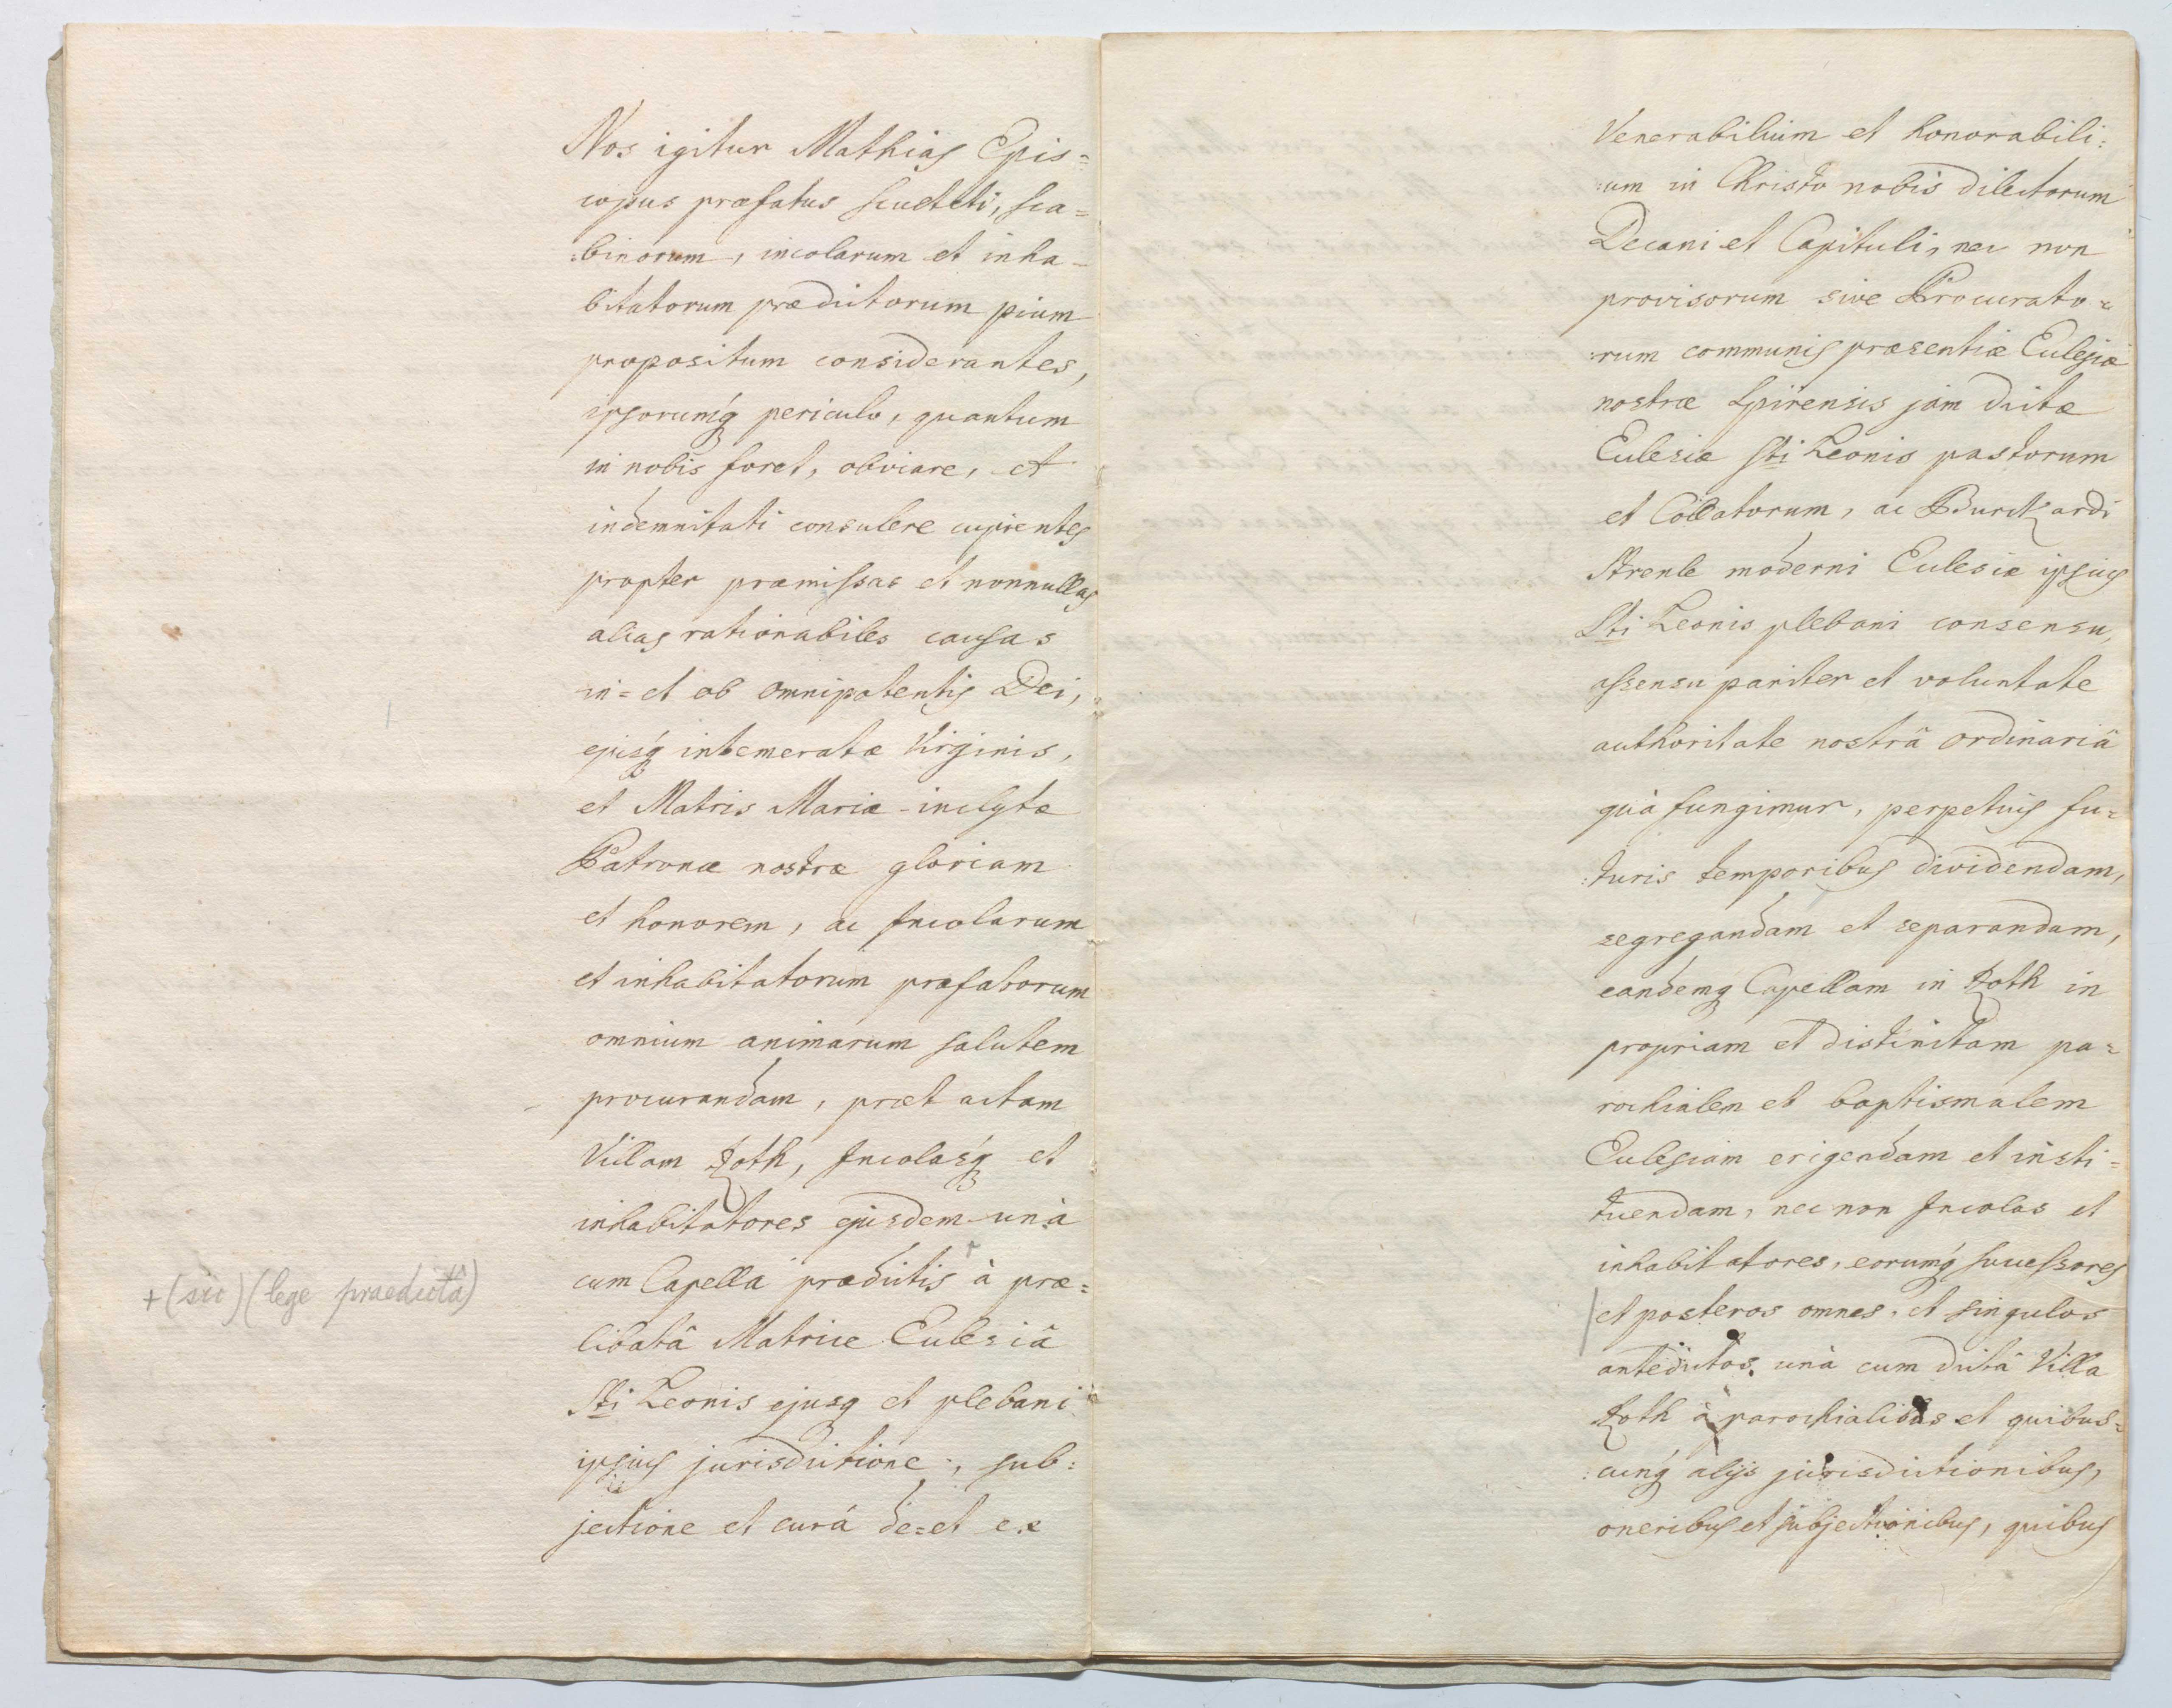 Nos igitur Mathias Epis=
copus præfatus sculteti, sca=
:binorum, incolarum et inha-
bitatorum prædictorum pium
propositum considerantes,
ipsorumq́ periculo, quantum
in nobis foret, obviare, et
indemnitati consulere cupientes
propter præmissas et nonnullas
alias rationabiles causas
in= et ob omnipotentis Dei,
ejusq́ intemeratæ Virginis,
et Matris Mariæ inclytæ
Patronæ nostræ gloriam
et honorem, ac Incolarum
et inhabitatorum præfatorum
omnium animarum salutem
procurandam, præt actam
Villam Roth, Incolasq́ et
inhabitatores ejusdem unà
cum Capella prædictis + à præ=
libatâ Matrice Ecclesiâ
Sti Leonis ejusq et plebani
ipsius jurisdictione, sub:
jectione et curâ de= et ex
+ (sic) (lege praedictâ)
Venerabilium et honorabili:
:um in Christo nobis dilectorum
Decani et Capituli, nec non
provisorum sive Procurato=
:rum communis præsentiæ Ecclesiæ
nostræ Spirensis jam dictæ
Ecclesiæ Sti Leonis pastorum
et Collatorum, ac Burckardi
Strenle moderni Ecclesiæ ipsius
Sti Leonis plebani consensu,
assensu pariter et voluntate
authoritate nostrâ ordinariâ
quâ fungimur, perpetuis fu=
:turis temporibus dividendam,
segregandam et separandam,
eandemq Capellam in Roth in
propriam et distinctam pa=
rochialem et baptismalem
Ecclesiam erigendam et insti=
tuendam, nec non Incolas et
inhabitatores, eorumq́ successores
et posteros omnes, et singulos
antedictos, unà cum dictâ Villa
Roth à parochialibus et quibus=
:cunq́ alijs jurisdictionibus,
oneribus et subjectionibus, quibus